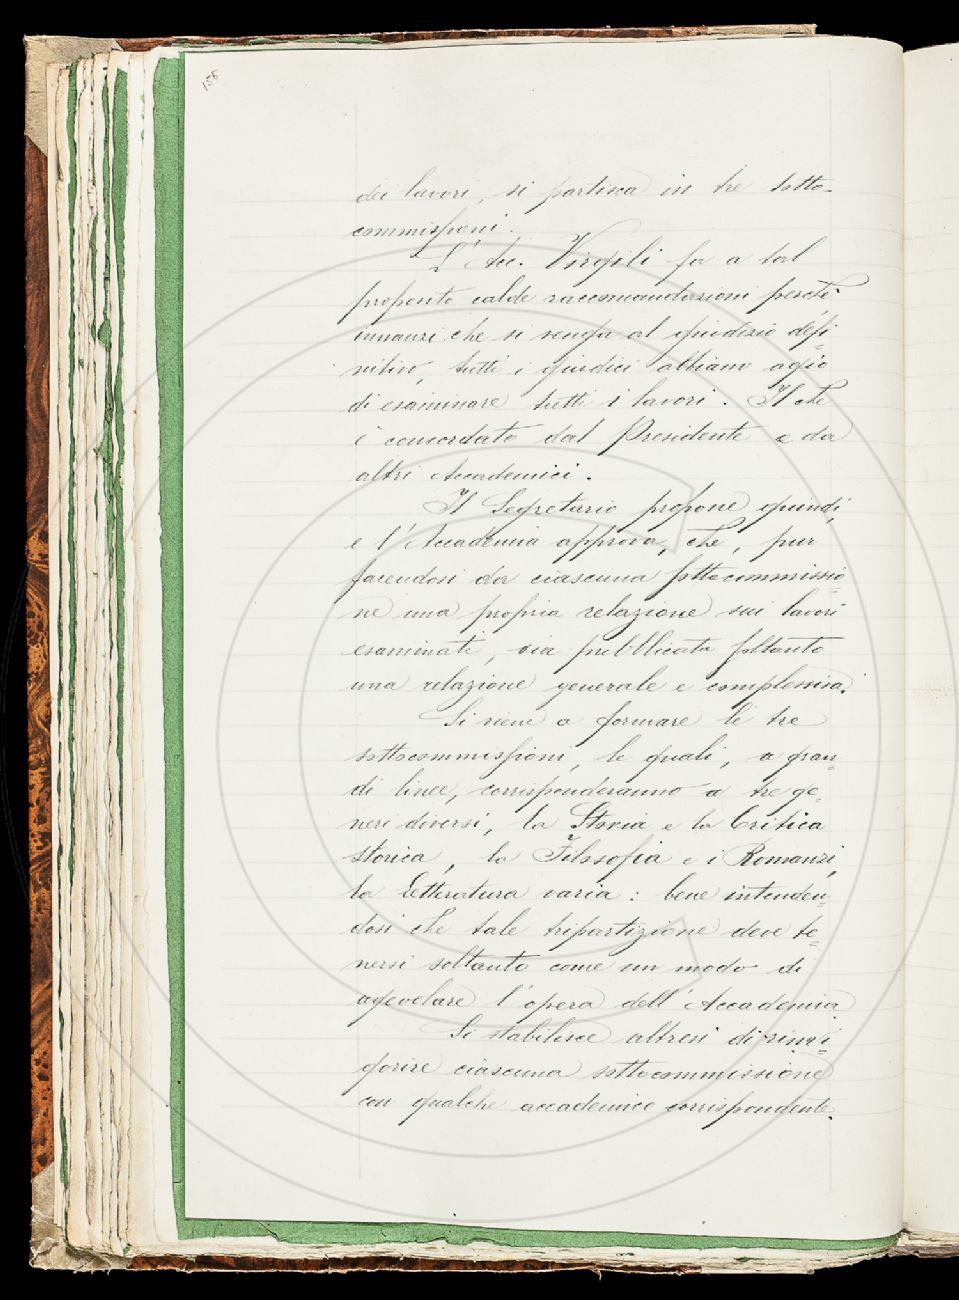 156
dei lavori, si partisca in tre sotto-
commissioni.
L'Acc. Virgili fa a tal
proposito calde raccomandazioni perchè
innanzi che si venga al giudizio defi=
nitivo, tutti i giudici abbiano agio
di esaminare tutti i lavori. Il che
è concordato dal Presidente e da
altri Accademici.
Il Segretario propone quindi,
e l'Accademia approva, che, pur
facendosi da ciascuna sottocommissio=
ne una propria relazione sui lavori
esaminati, sia pubblicata soltanto
una relazione generale e complessiva.
Si viene a formare le tre
sottocommissioni, le quali, a gran=
di linee, corrisponderanno a tre ge=
neri diversi, la Storia e la Critica
storica, la Filosofia e i Romanzi,
la Letteratura varia: bene intenden=
dosi che tale tripartizione deve te=
nersi soltanto come un modo di
agevolare l'opera dell'Accademia
Si stabilisce altresì di rinvi=
gorire ciascuna sottocommissione
con qualche accademico corrispondente.